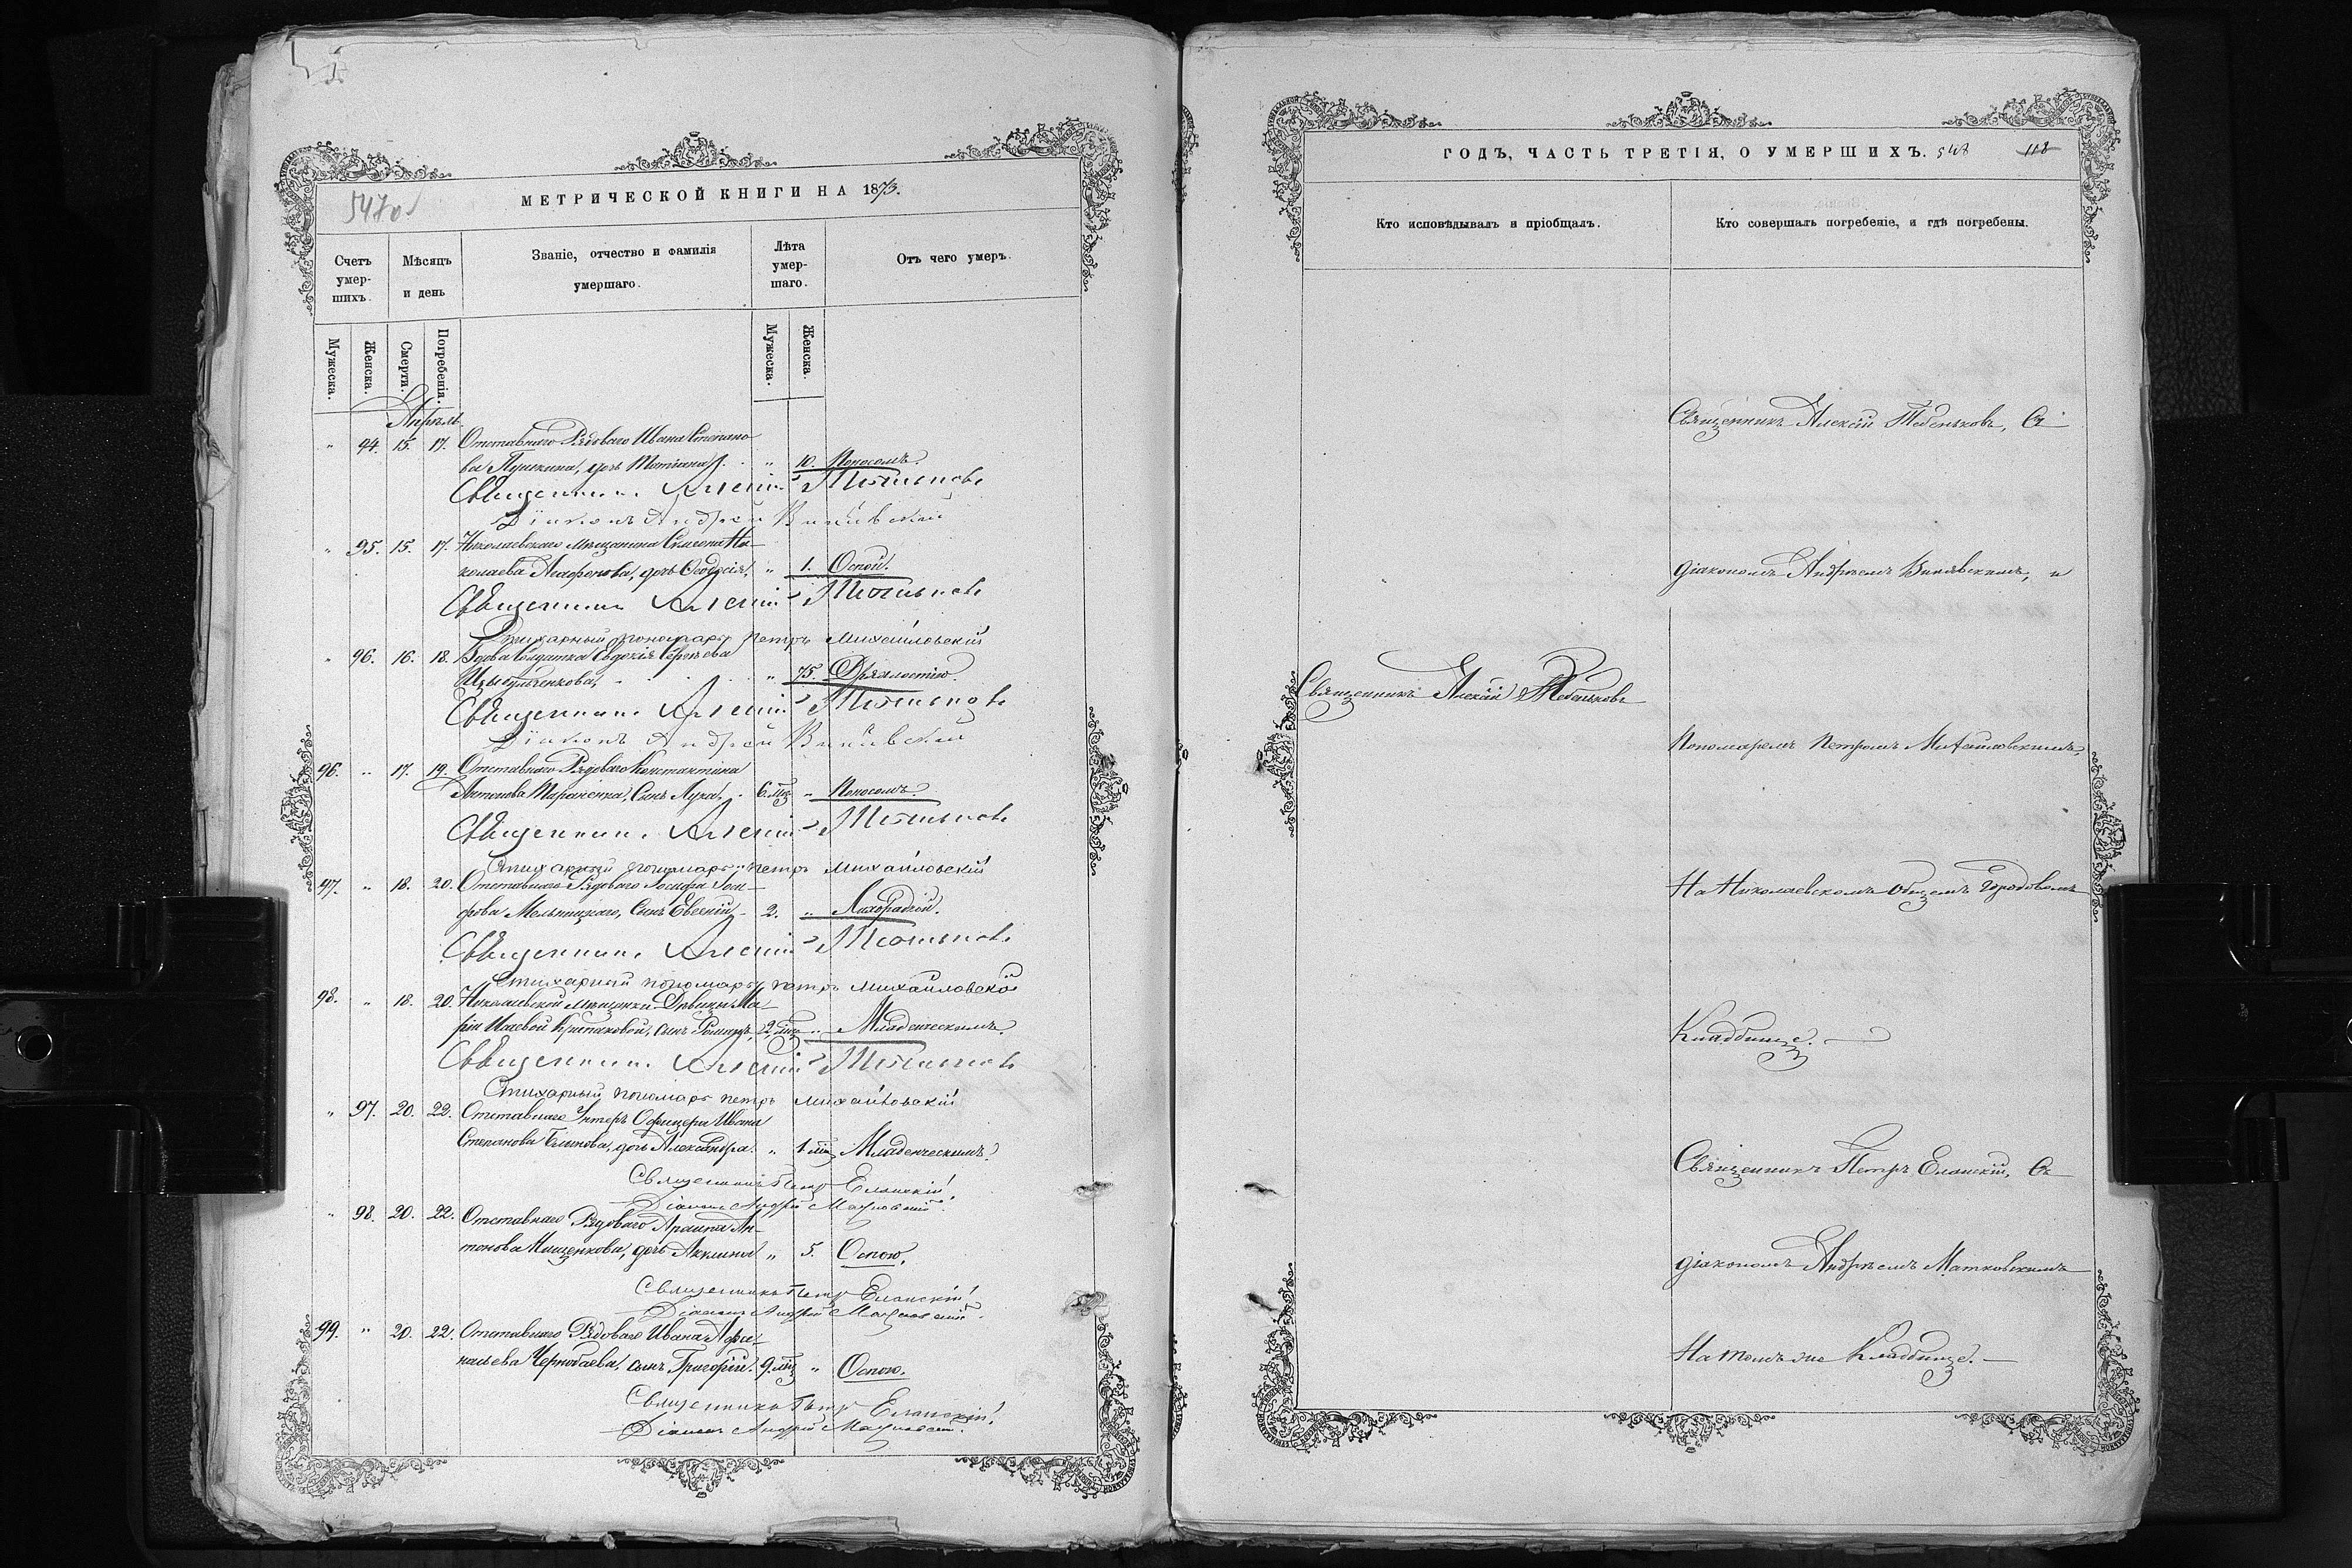 547 об
МЕТРИЧЕСКОЙ КНИГИ НА 1873.
Счетъ умершихъ.
Мѣсяцъ и день
Званіе, отчество и фамилія умершаго.
Лѣта умершаго.
Отъ чего умеръ.
Мужеска.
Женска.
Смерти.
Погребенія.
Мужеска.
Женска.
Апрѣль
" 94. 15. 17. Отставнаго Рядоваго Ивана Степано-
ва Пушкина, дочь Татіана. " 10. Поносомъ.
Священникъ Алексій Тебеньковъ
Діаконъ Андрей
" 95. 15. 17. Николаевскаго мѣщанина Ни-
колаева дочь Ѳеодосія, " 1. Оспой.
Священникъ Алексій Тебеньковъ
Стихарный пономарь Петръ Михайловскій
" 96. 16. 18. Вдова Солдатка Евдокія Сергѣева
" 75. Дряхлостію.
Священникъ Алексій Тебеньковъ
Діаконъ Андрей
96. " 17. 19. Отставнаго Рядоваго Константина
Антонова Тараненка, Сынъ Лука, 6. мц. " Поносомъ.
Священникъ Алексій Тебеньковъ
Стихарный пономарь Петръ Михайловскій
97. " 18. 20. Отставнаго Рядоваго Іосифа Іоси-
фова Мельницкаго, Сынъ Евсевій 2. " Лихорадкой.
Священникъ Алексій Тебеньковъ
Стихарный пономарь Петръ Михайловскій
98. " 18. 20. Николаевской мѣщанки Дѣвицы Ма-
ріи сынъ 2. " Младенческимъ.
Священникъ Алексій Тебеньковъ
Стихарный пономарь Петръ Михайловскій
" 97. 20. 22. Отставнаго Унтеръ Офицера Ивана
Степанова дочь Александра. " 1 мц Младенческимъ.
Священникъ Петръ Еланскій
Діаконъ Андрей Матковскій.
" 98. 20. 22. Отставнаго Рядоваго Ан-
тонова Мищенкова, дочь Акилина " 5. Оспою.
Священникъ Петръ Еланскій
Діаконъ Андрей Матковскій.
99. " 20. 22. Отставнаго Рядоваго Ивана Афа-
насьева Чернобаева, сынъ Григорій. 9. мц " Оспою.
Священникъ Петръ Еланскій
Діаконъ Андрей Матковскій.
ГОДЪ, ЧАСТЬ ТРЕТІЯ, О УМЕРШИХЪ. 548 118
Кто исповѣдывалъ и пріобщалъ.
Кто совершалъ погребеніе, и гдѣ погребены.
Священникъ Алексій Тебеньковъ, Съ
діакономъ Андреемъ и
Священникъ Алексій Тебеньковъ
Пономаремъ Петромъ Михайловскимъ,
На Николаевскомъ общемъ Городовомъ
Кладбище.
Священникъ Петръ Еланскій, Съ
діакономъ Андреемъ Матковскимъ
На томъ же Кладбище.